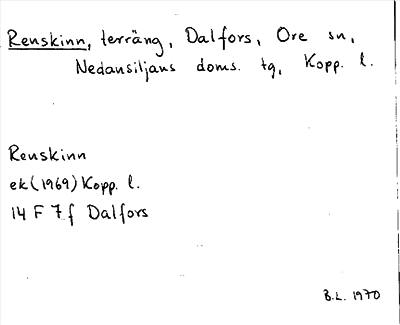 Renskinn, terräng, Dalfors, Ore sn,
Nedansiljans doms. tg, Kopp. l.
Renskinn
ek (1969) Kopp. l.
14 F 7f Dalfors
B.L. 1970